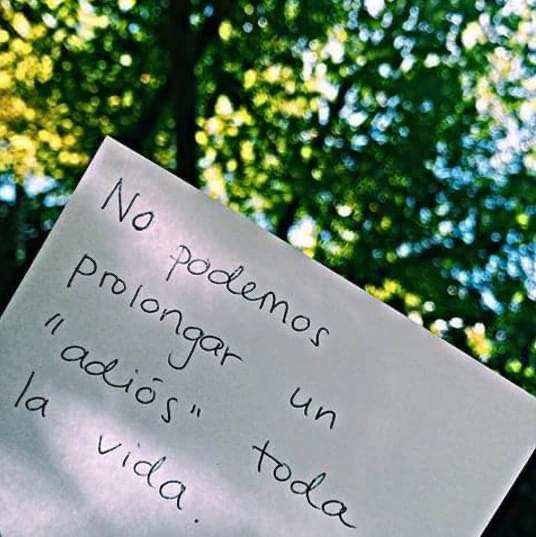 No podemos
prolongar un
"adiós" toda
la vida.